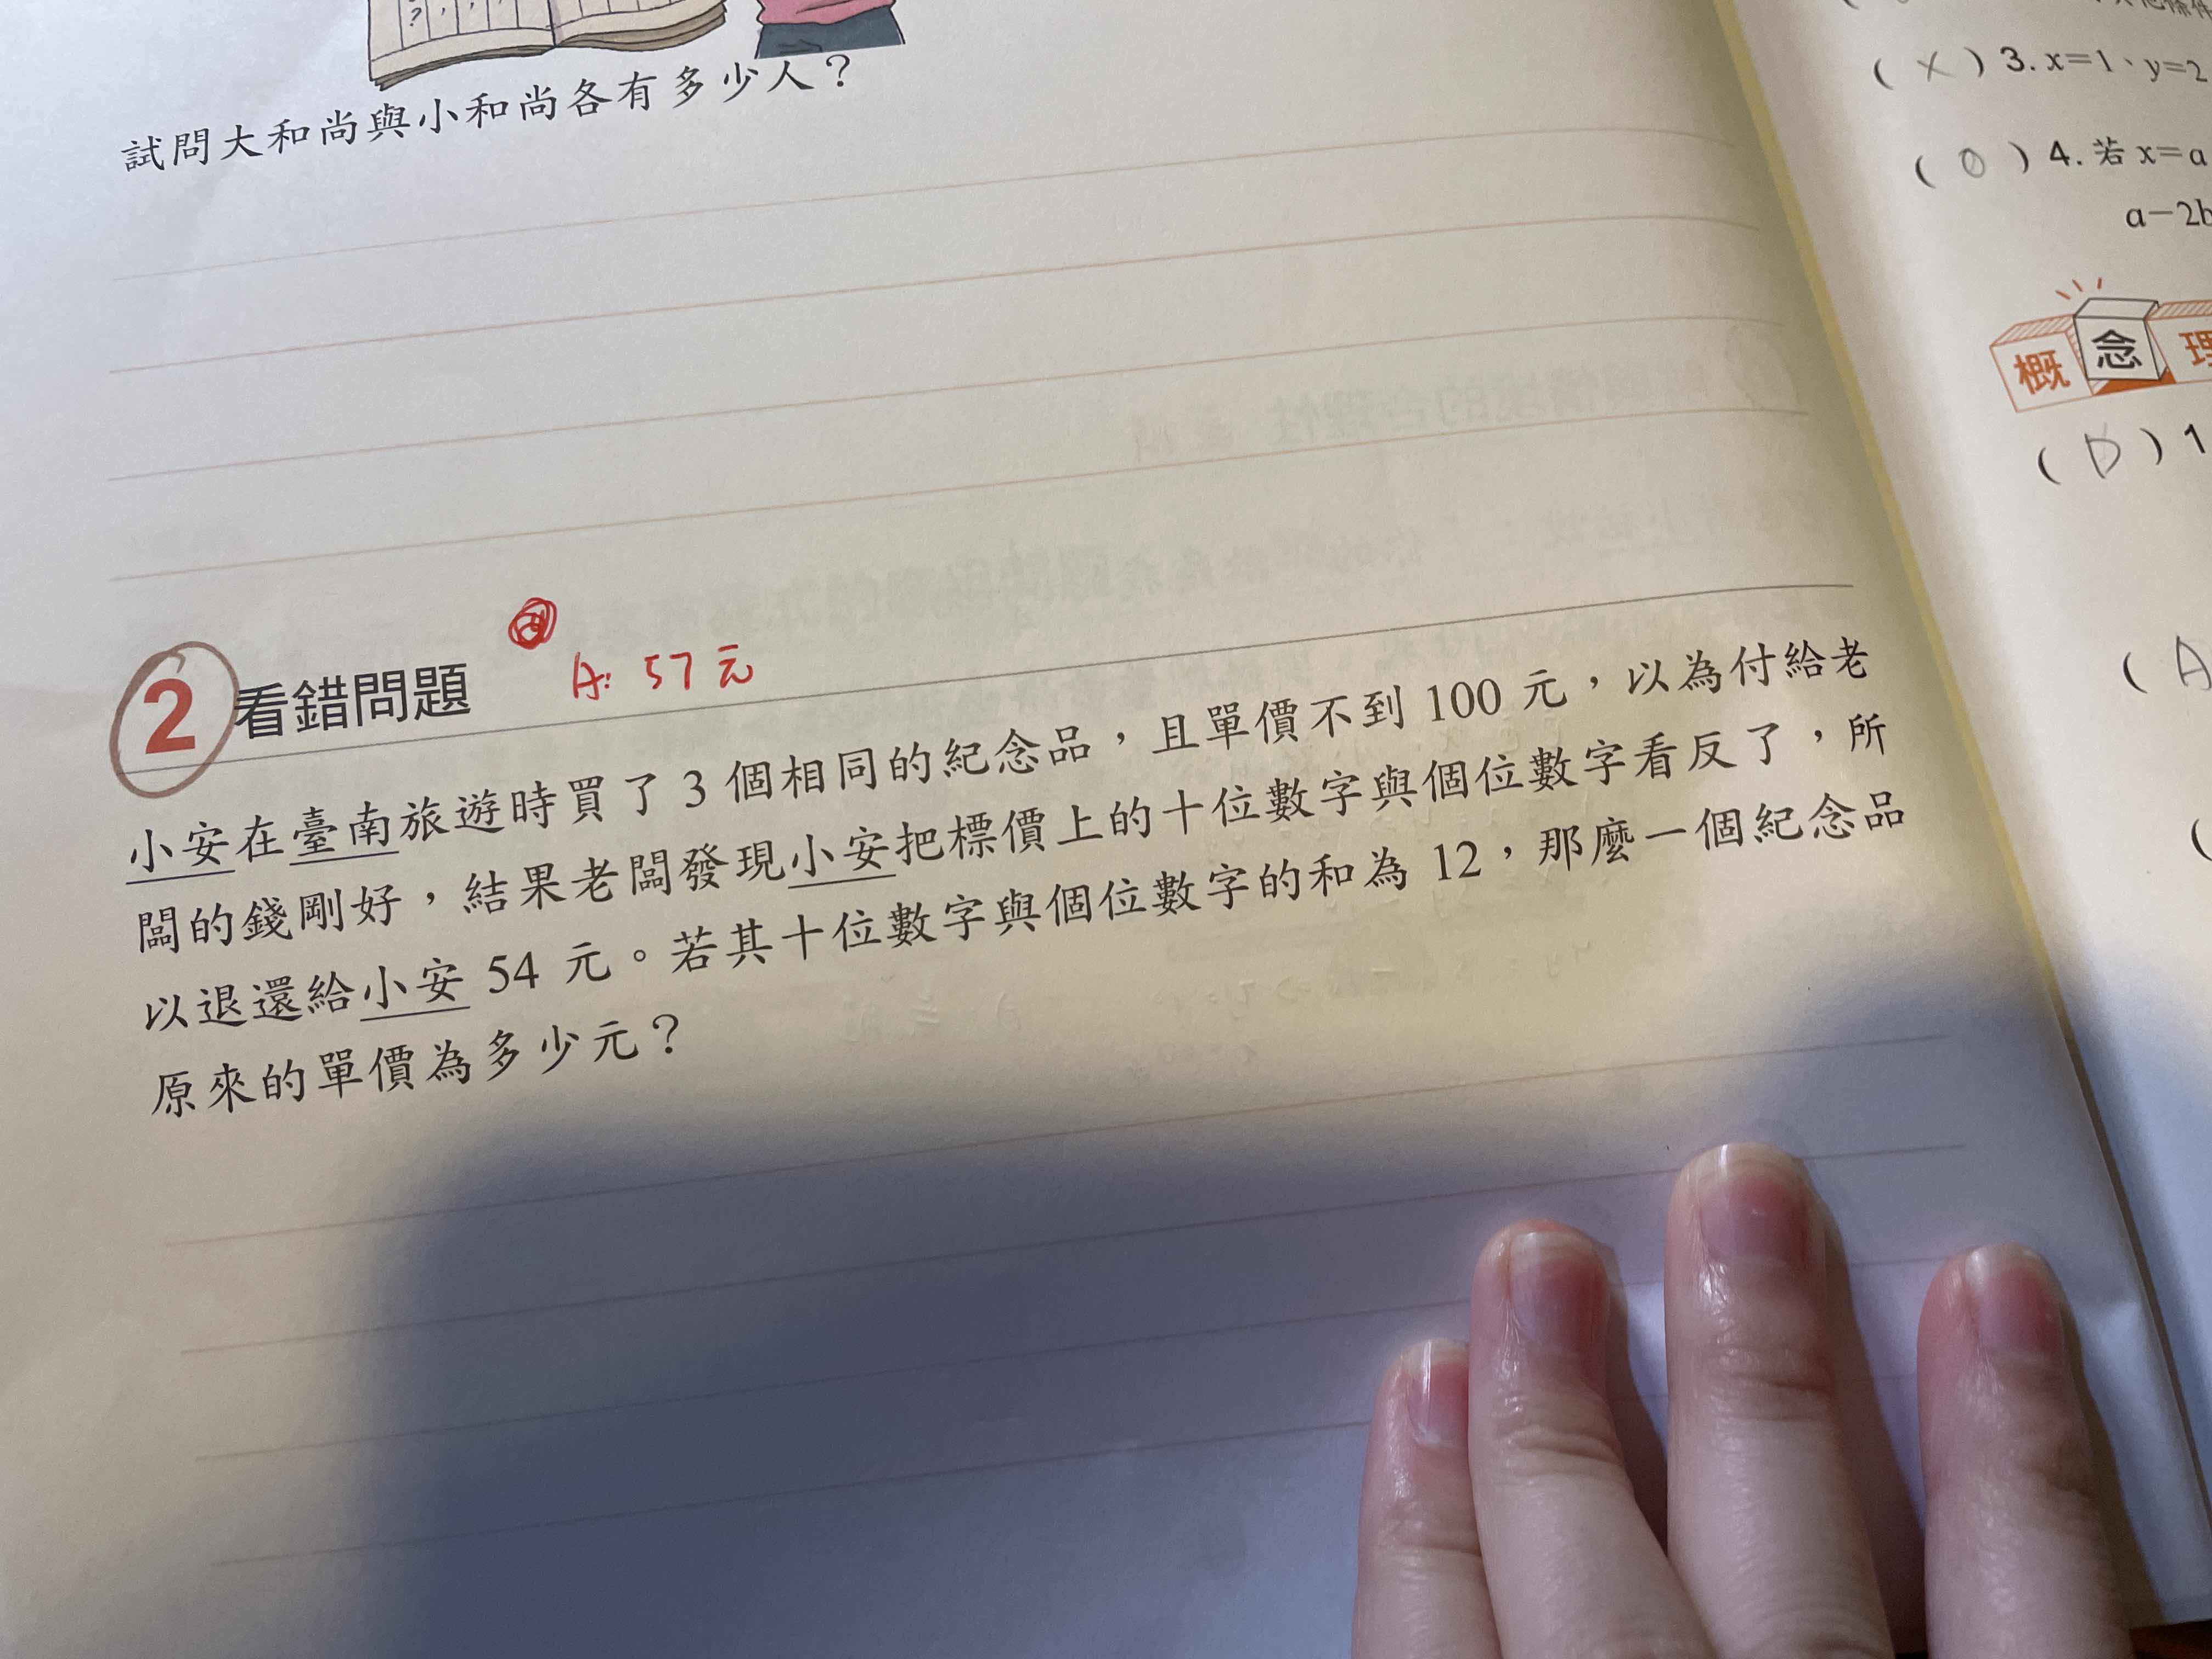 試問大和尚與小和尚各有多少人？
2 看錯問題
A: 57元
小安在臺南旅遊時買了3個相同的紀念品，且單價不到100元，以為付給老
闆的錢剛好，結果老闆發現小安把標價上的十位數字與個位數字看反了，所
以退還給小安54元。若其十位數字與個位數字的和為12，那麼一個紀念品
原來的單價為多少元？
( X ) 3. x=1、y=2
( O ) 4. 若 x=a
a－2b
概念理
( D ) 1
( A
(